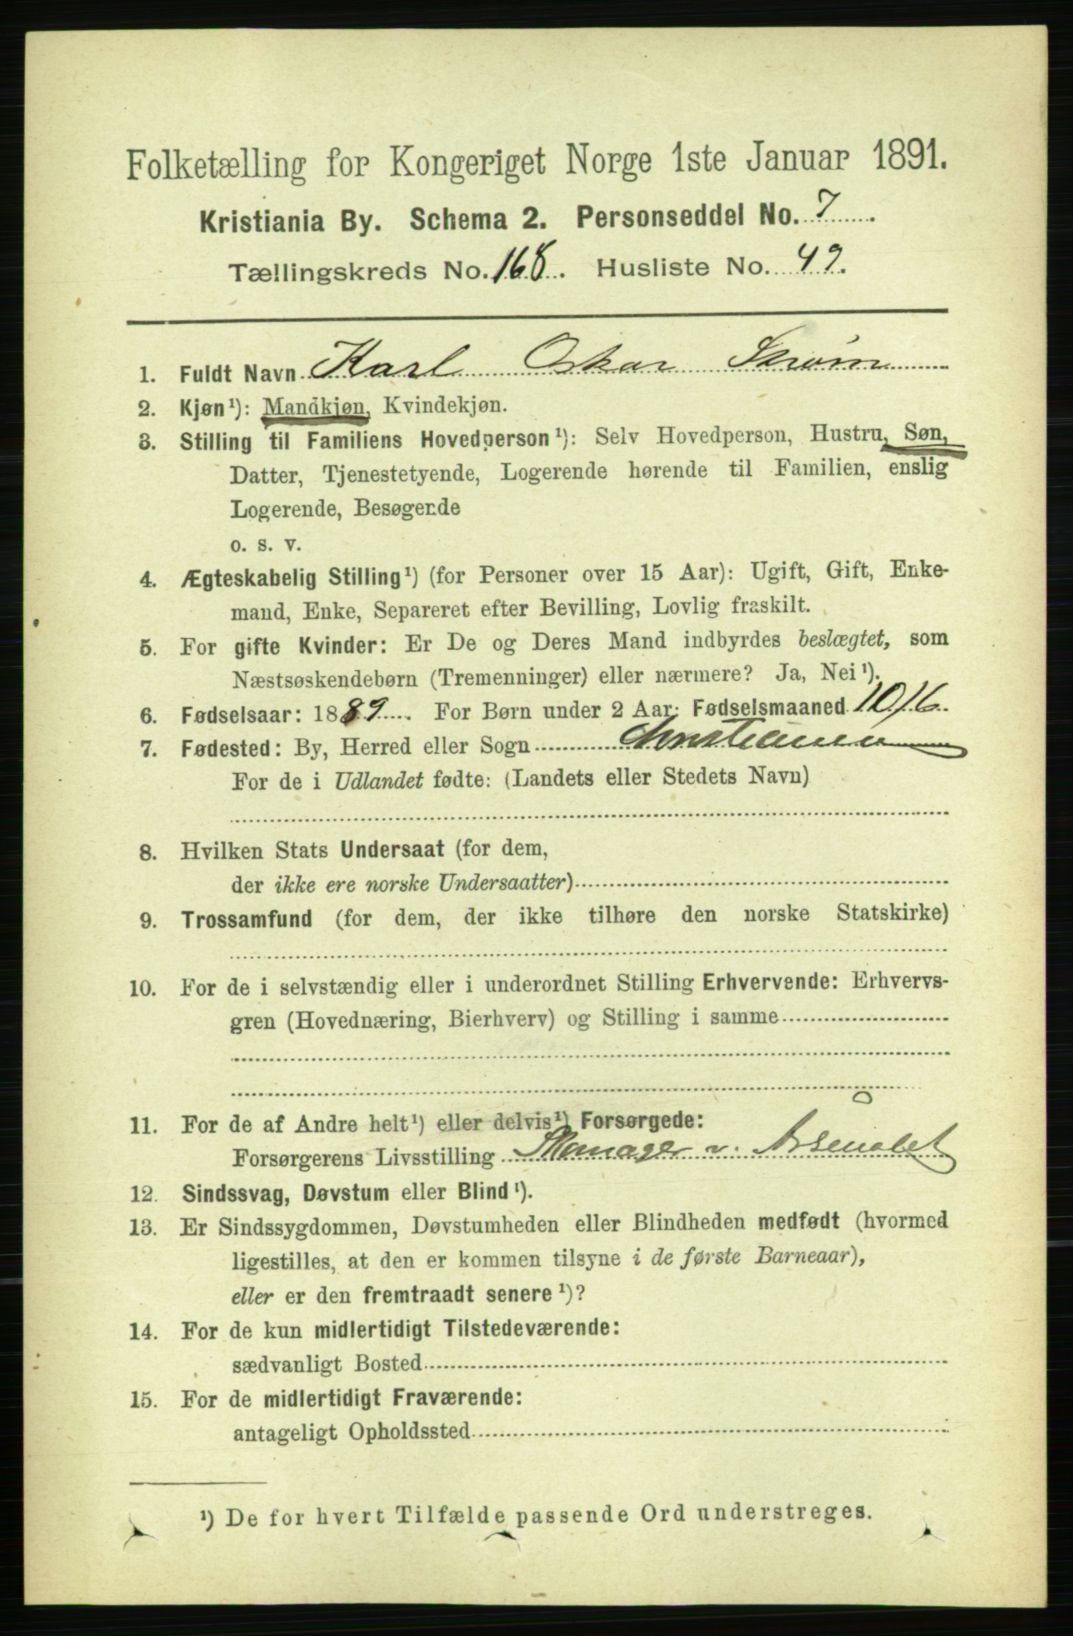 Folketælling for Kongeriget Norge 1ste Januar 1891.
Kristiania By. Schema 2. Personseddel No. 7.
Tællingskreds No. 168. Husliste No. 49.
1. Fuldt Navn Karl Oskar Strøm
2. Kjøn¹): Mandkjøn, Kvindekjøn.
3. Stilling til Familiens Hovedperson¹): Selv Hovedperson, Hustru, Søn,
Datter, Tjenestetyende, Logerende hørende til Familien, enslig
Logerende, Besøgende
o. s. v.
4. Ægteskabelig Stilling¹) (for Personer over 15 Aar): Ugift, Gift, Enke-
mand, Enke, Separeret efter Bevilling, Lovlig fraskilt.
5. For gifte Kvinder: Er De og Deres Mand indbyrdes beslægtet, som
Næstsøskendebørn (Tremenninger) eller nærmere? Ja, Nei¹).
6. Fødselsaar: 1889. For Børn under 2 Aar: Fødselsmaaned 10/6.
7. Fødested: By, Herred eller Sogn Christiania
For de i Udlandet fødte: (Landets eller Stedets Navn)
8. Hvilken Stats Undersaat (for dem,
der ikke ere norske Undersaatter)
9. Trossamfund (for dem, der ikke tilhøre den norske Statskirke)
10. For de i selvstændig eller i underordnet Stilling Erhvervende: Erhvervs-
gren (Hovednæring, Bierhverv) og Stilling i samme
11. For de af Andre helt¹) eller delvis¹) Forsørgede:
Forsørgerens Livsstilling Skomager v. Arsenalet
12. Sindssvag, Døvstum eller Blind¹).
13. Er Sindssygdommen, Døvstumheden eller Blindheden medfødt (hvormed
ligestilles, at den er kommen tilsyne i de første Barneaar),
eller er den fremtraadt senere¹)?
14. For de kun midlertidigt Tilstedeværende:
sædvanligt Bosted
15. For de midlertidigt Fraværende:
antageligt Opholdssted
¹) De for hvert Tilfælde passende Ord understreges.